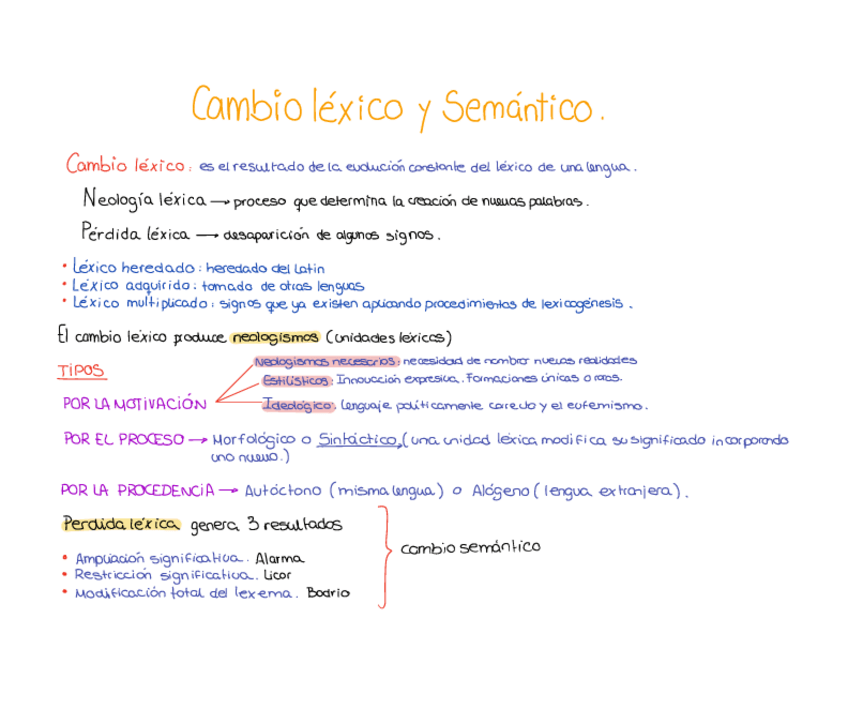 Cambio léxico y Semántico.
Cambio léxico: es el resultado de la evolución constante del léxico de una lengua.
Neología léxica → proceso que determina la creación de nuevas palabras.
Pérdida léxica → desaparición de algunos signos.
• Léxico heredado: heredado del Latin
• Léxico adquirido: tomado de otras lenguas
• Léxico multiplicado: signos que ya existen aplicando procedimientos de lexicogénesis.
El cambio léxico produce neologismos (unidades léxicas)
TIPOS
Neologismos necesarios: necesidad de nombrar nuevas realidades
Estilísticos: Innovación expresiva. Formaciones únicas o raras.
POR LA MOTIVACIÓN
Ideológico. Lenguaje políticamente correcto y el eufemismo.
POR EL PROCESO → Morfológico o Sintáctico, (una unidad léxica modifica su significado incorporando
uno nuevo.)
POR LA PROCEDENCIA → Autóctono (misma lengua) o Alógeno (lengua extranjera).
Perdida léxica genera 3 resultados
cambio semántico
• Ampliación significativa. Alarma
• Restricción significativa. Licor
• Modificación total del lexema. Bodrio